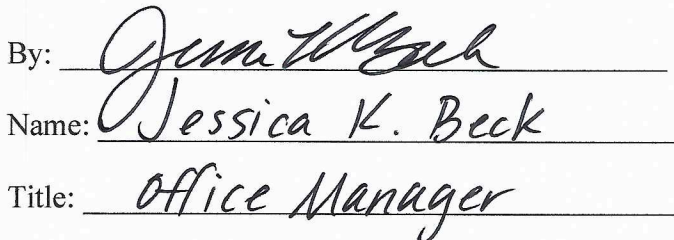 By:
Name: Jessica K. Beck
Title: Office Manager